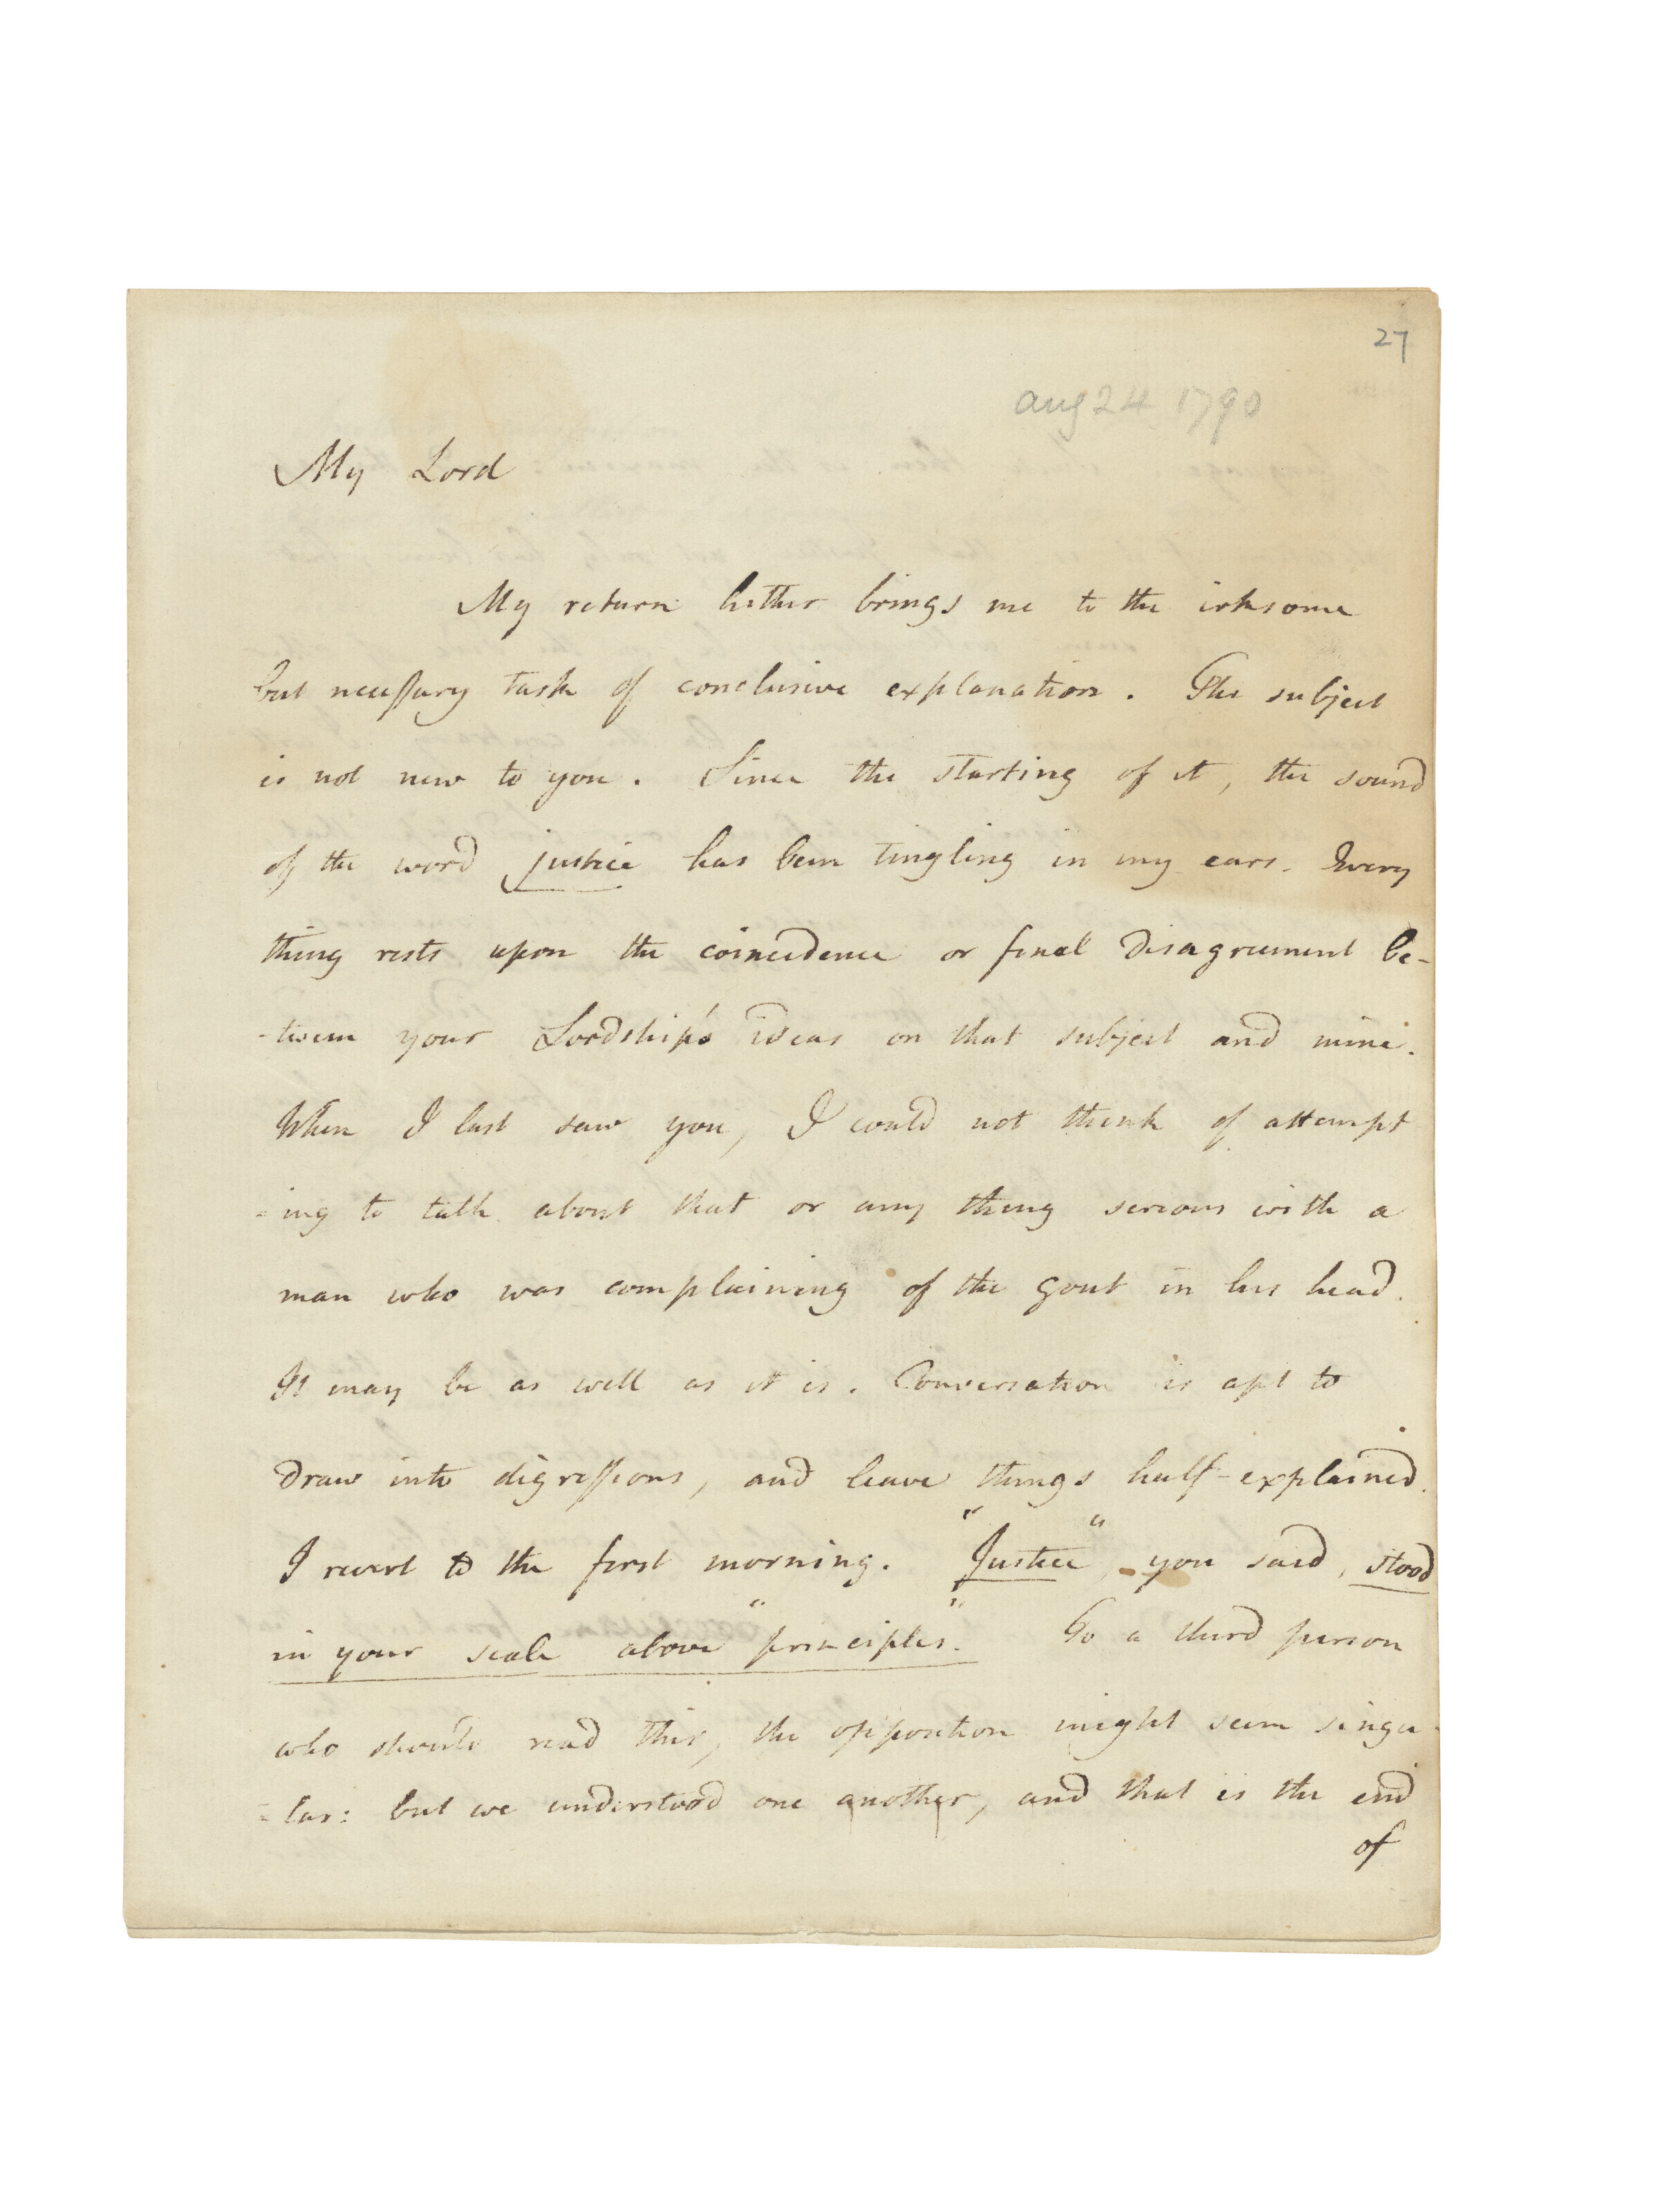 27
aug 24 1790
My Lord
My return hither brings me to the irksome
but necessary task of conclusive explanation. The subject
is not new to you. Since the starting of it, the sound
of the word justice has been tingling in my ears. Every
thing rests upon the coincidence or final disagreement be-
-tween your Lordship's ideas on that subject and mine.
When I last saw you, I could not think of attempt
=ing to talk about that or any thing serious with a
man who was complaining of the gout in his head.
It may be as well as it is. Conversation is apt to
draw into digressions, and leave things half-explained.
I revert to the first morning. "Justice", you said, stood
in your scale above "principles". To a third person
who should read this, the opposition might seem singu-
=lar: but we understood one another, and that is the end
of